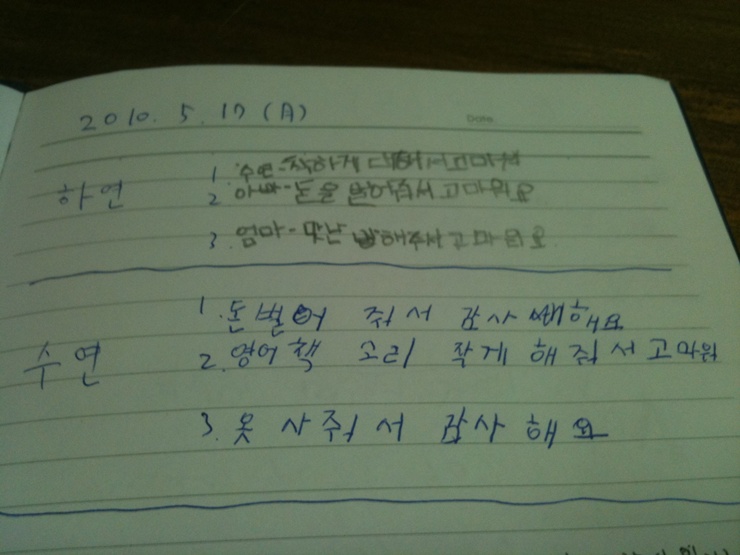 2010. 5. 17 (月)
Date
하연
1 수연-착하게 대해서 고마워
2 아빠-돈을 벌어줘서 고마워요
3. 엄마-맛난 밥해주셔 고마워요
수연
1. 돈벌어 줘서 감사 해요
2. 영어책 소리 작게 해줘서 고마워
3. 옷 사줘서 감사해요